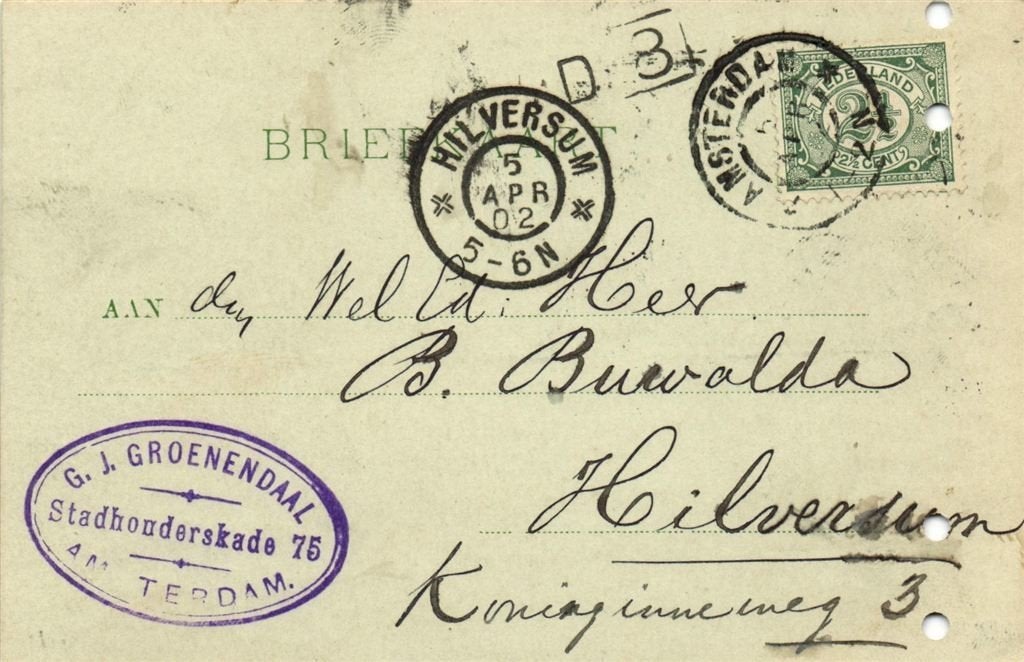 D 3
HILVERSUM
5
APR
02
5-6N
AMSTERDAM
NEDERLAND
2½
2½ CENT
BRIEFKAART
AAN den Wel Ed. Heer
B. Buwalda
Hilversum
Koninginneweg 3
G. J. GROENENDAAL
Stadhouderskade 75
AM TERDAM.